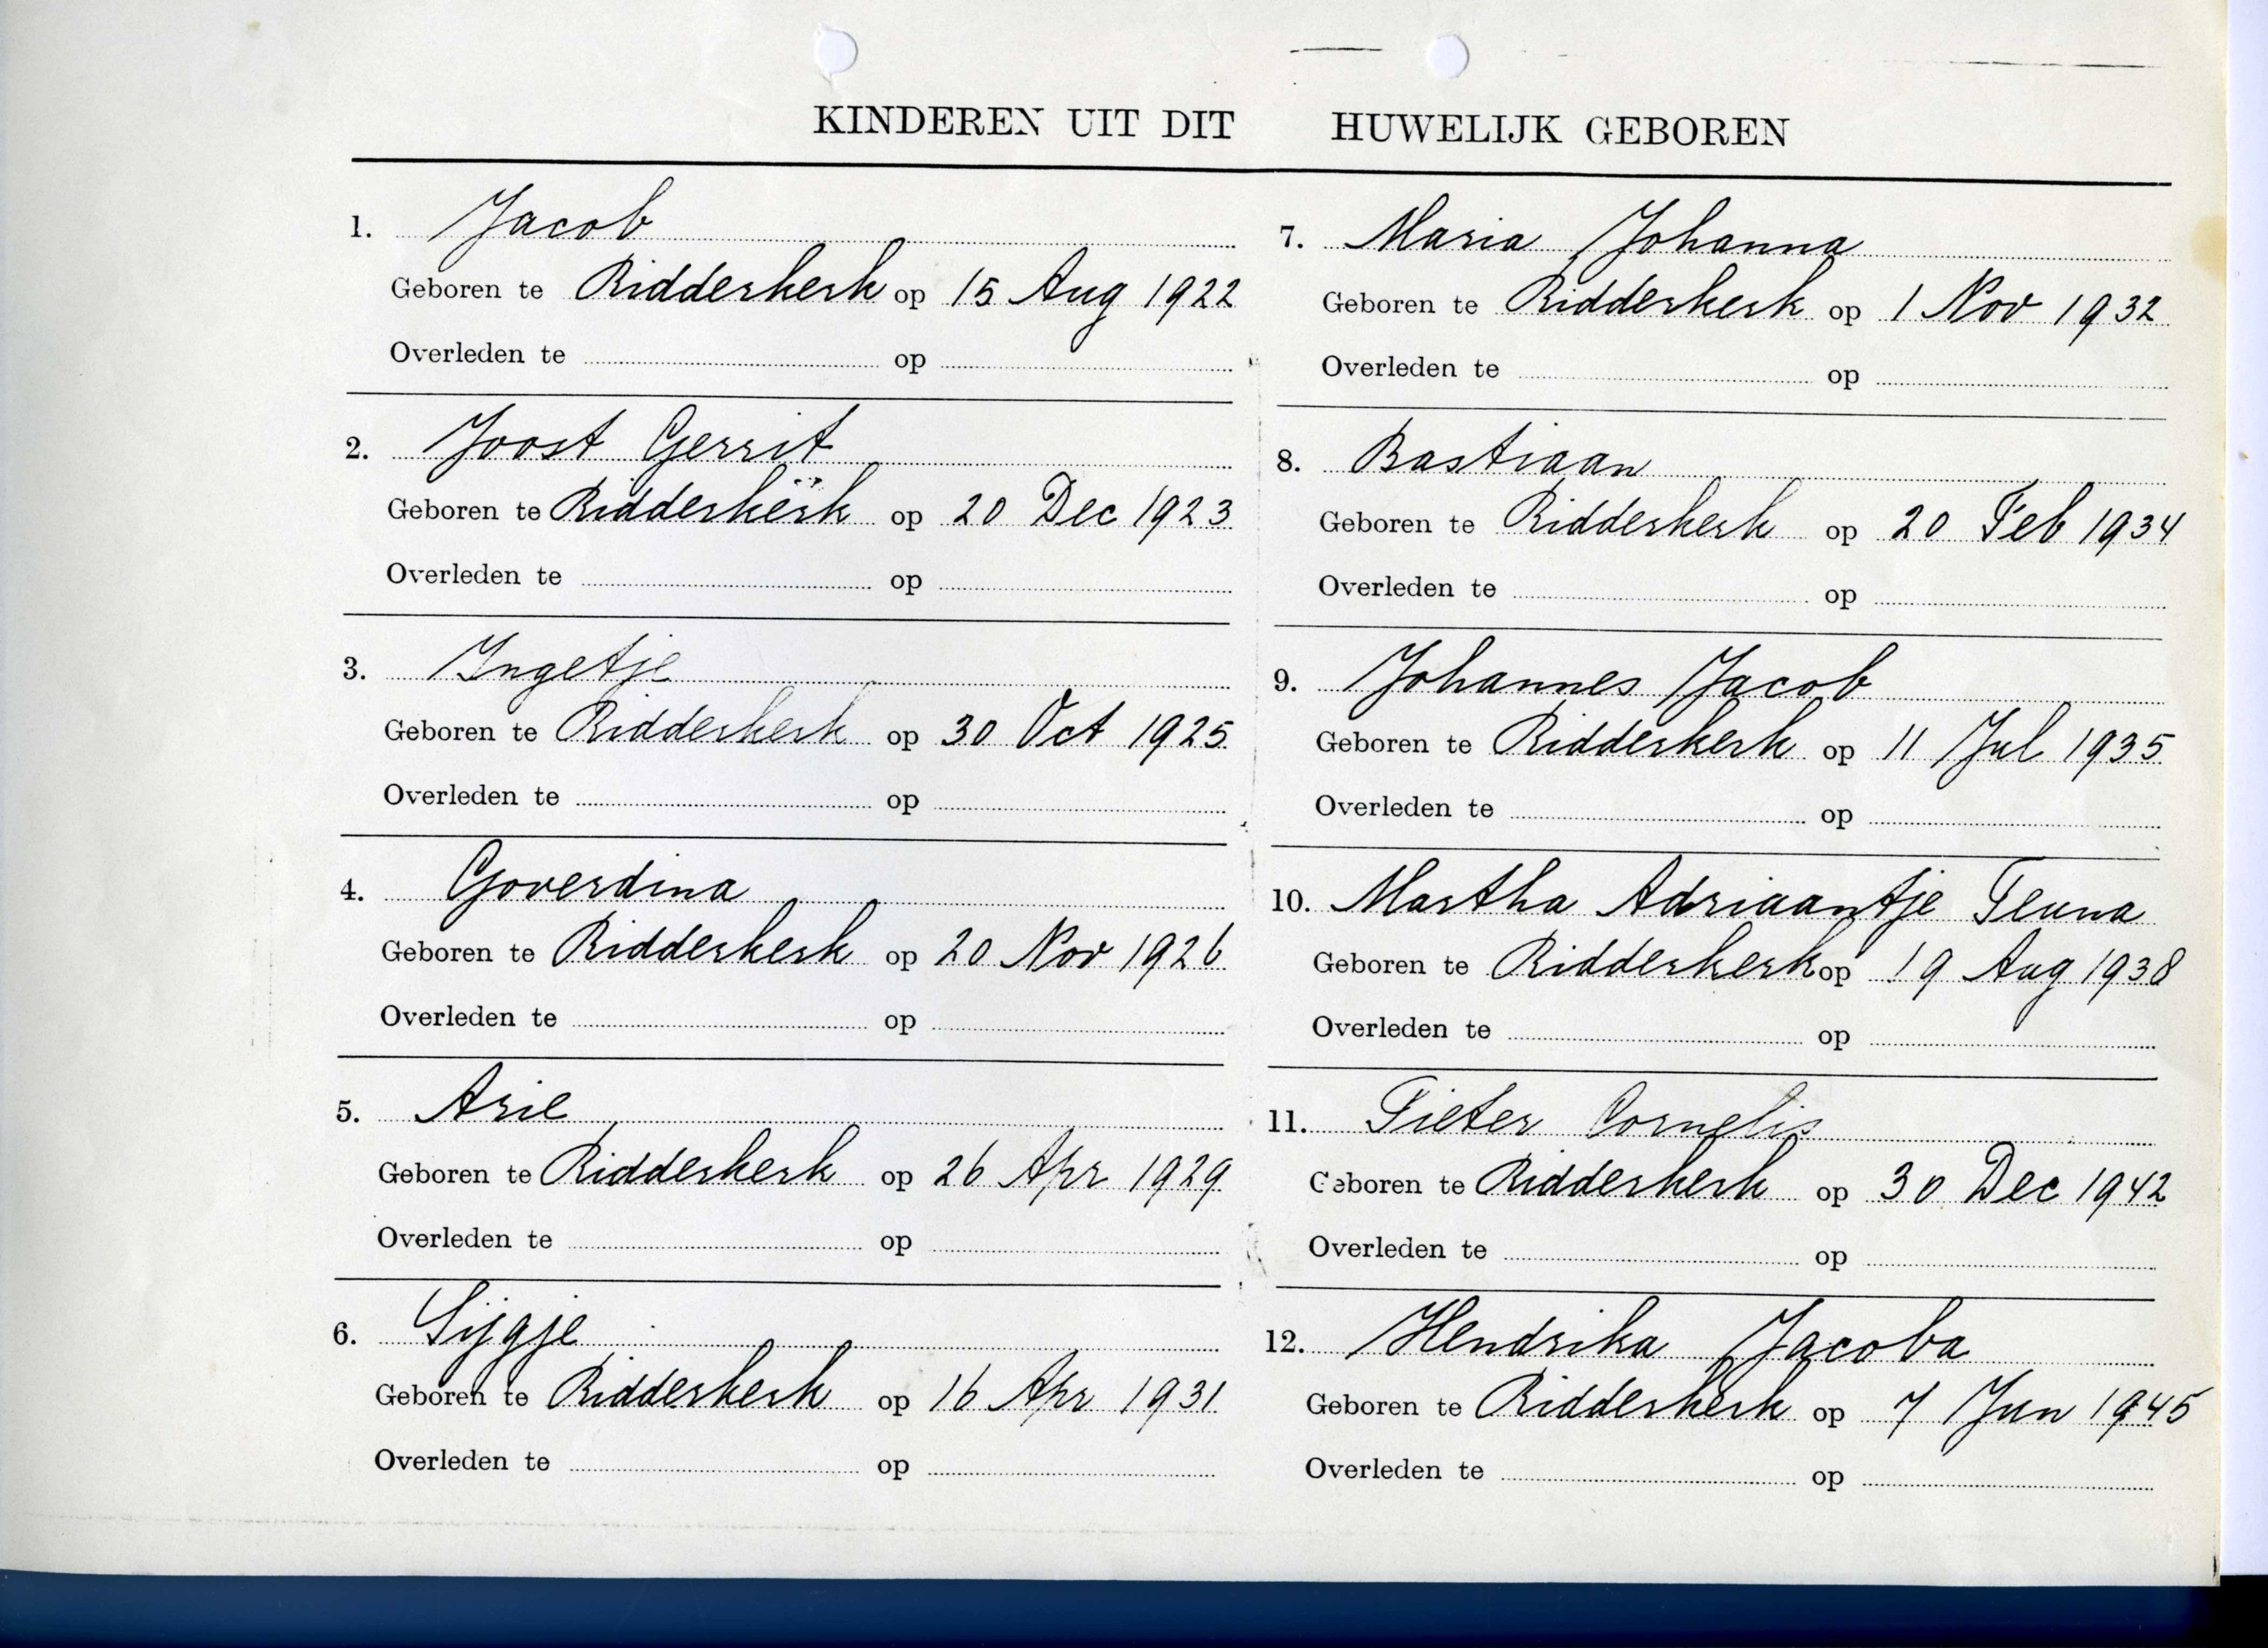 KINDEREN UIT DIT HUWELIJK GEBOREN
1. Jacob
Geboren te Ridderkerk op 15 Aug 1922
Overleden te op
2. Joost Gerrit
Geboren te Ridderkerk op 20 Dec 1923
Overleden te op
3. Ingetje
Geboren te Ridderkerk op 30 Oct 1925
Overleden te op
4. Goverdina
Geboren te Ridderkerk op 20 Nov 1926
Overleden te op
5. Arie
Geboren te Ridderkerk op 26 Apr 1929
Overleden te op
6. Sijgje
Geboren te Ridderkerk op 16 Apr 1931
Overleden te op
7. Maria Johanna
Geboren te Ridderkerk op 1 Nov 1932
Overleden te op
8. Bastiaan
Geboren te Ridderkerk op 20 Feb 1934
Overleden te op
9. Johannes Jacob
Geboren te Ridderkerk op 11 Jul 1935
Overleden te op
10. Martha Adriaantje Teuna
Geboren te Ridderkerk op 19 Aug 1938
Overleden te op
11. Pieter Cornelis
Geboren te Ridderkerk op 30 Dec 1942
Overleden te op
12. Hendrika Jacoba
Geboren te Ridderkerk op 7 Jun 1945
Overleden te op